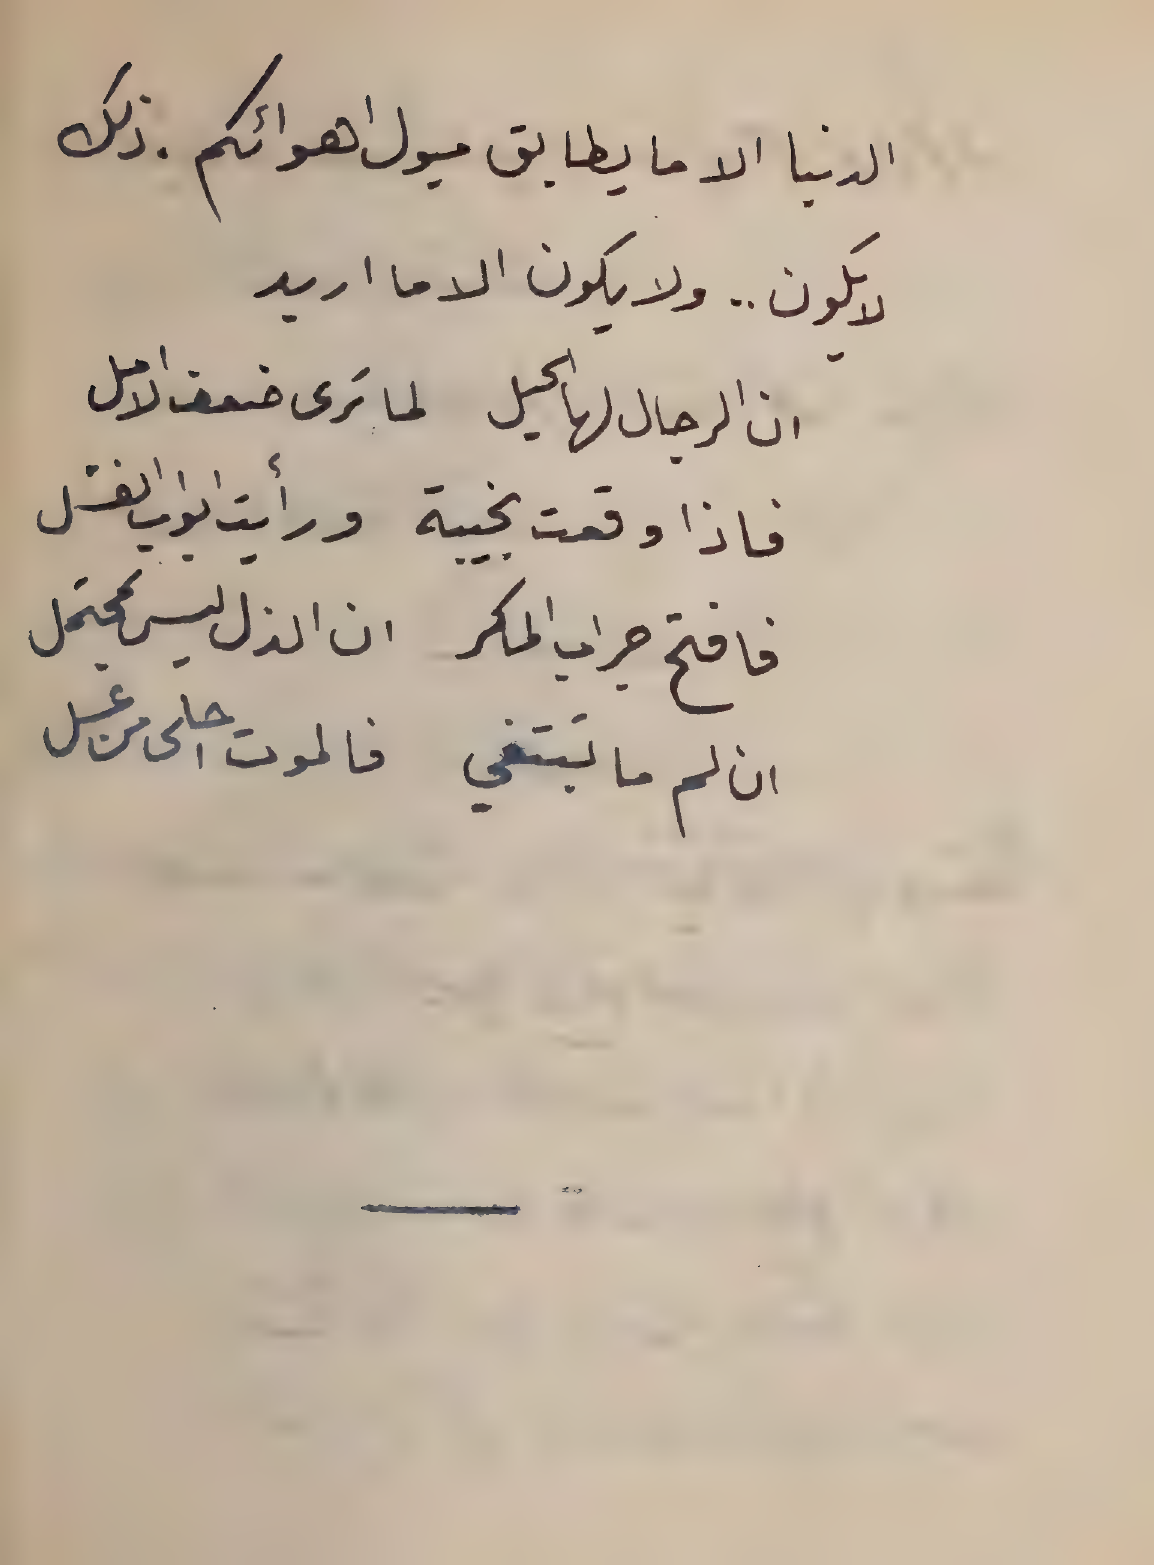 الدنيا الا ما يطابق ميول اهوائكم . ذلك
لا يكون .. ولا يكون الا ما اريد
ان الرجال لها الحيل لما ترى ضعف الامل
فاذا وقعت بخيبة ورأيت ابواب الفشل
فافتح جراب المكر ان الذل ليس بمحتمل
ان لم ما تبتغي فالموت احلى من عسل